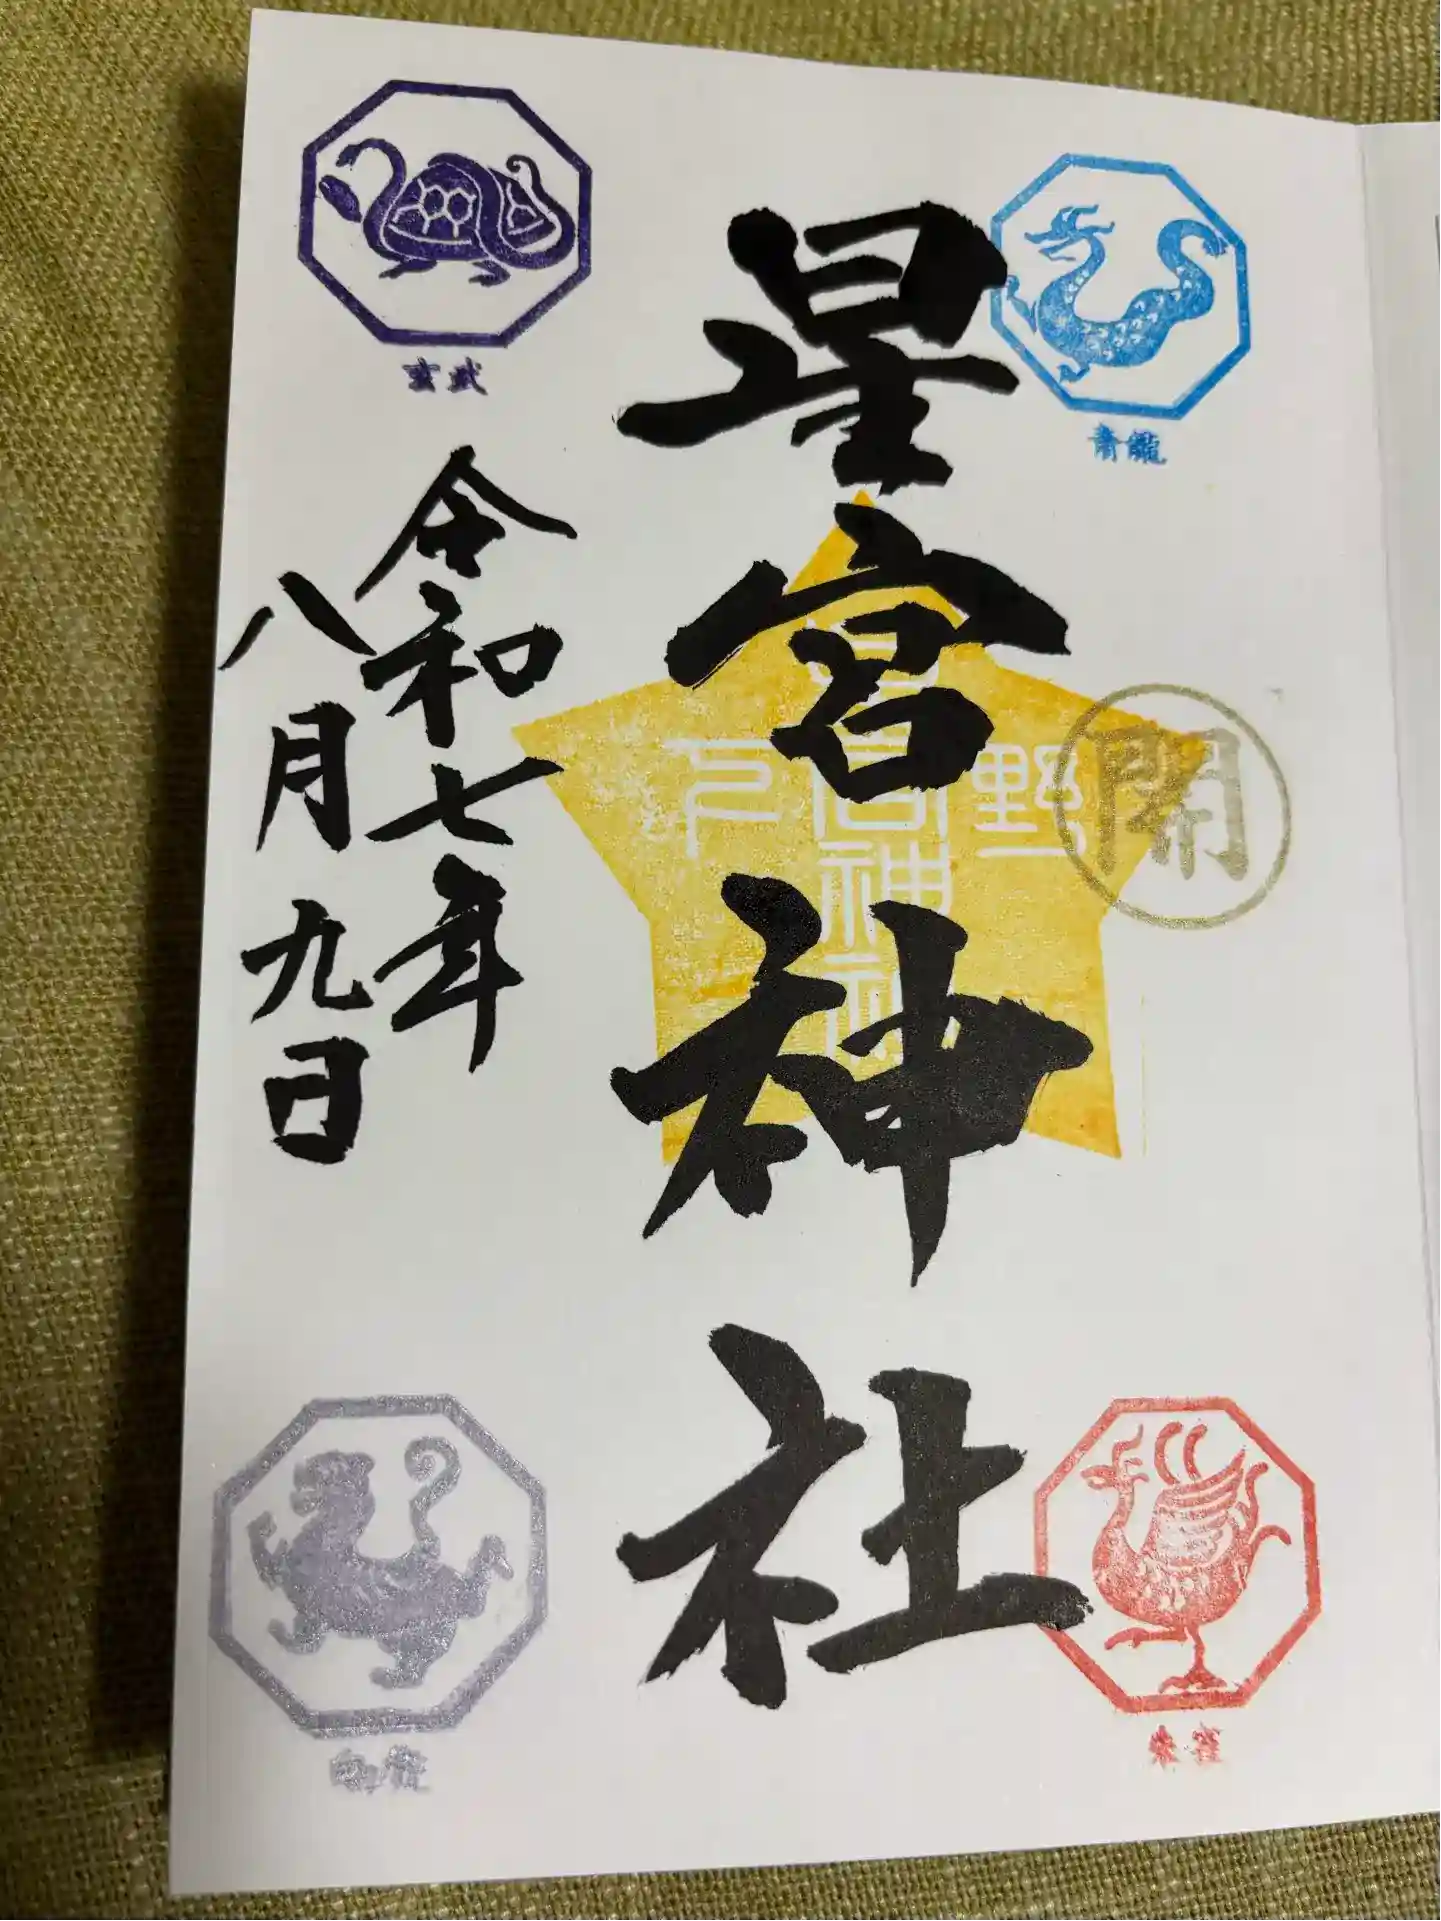 青龍
星宮神社
開
下
野
星宮神社
令和七年
八月九日
玄武
朱雀
白虎